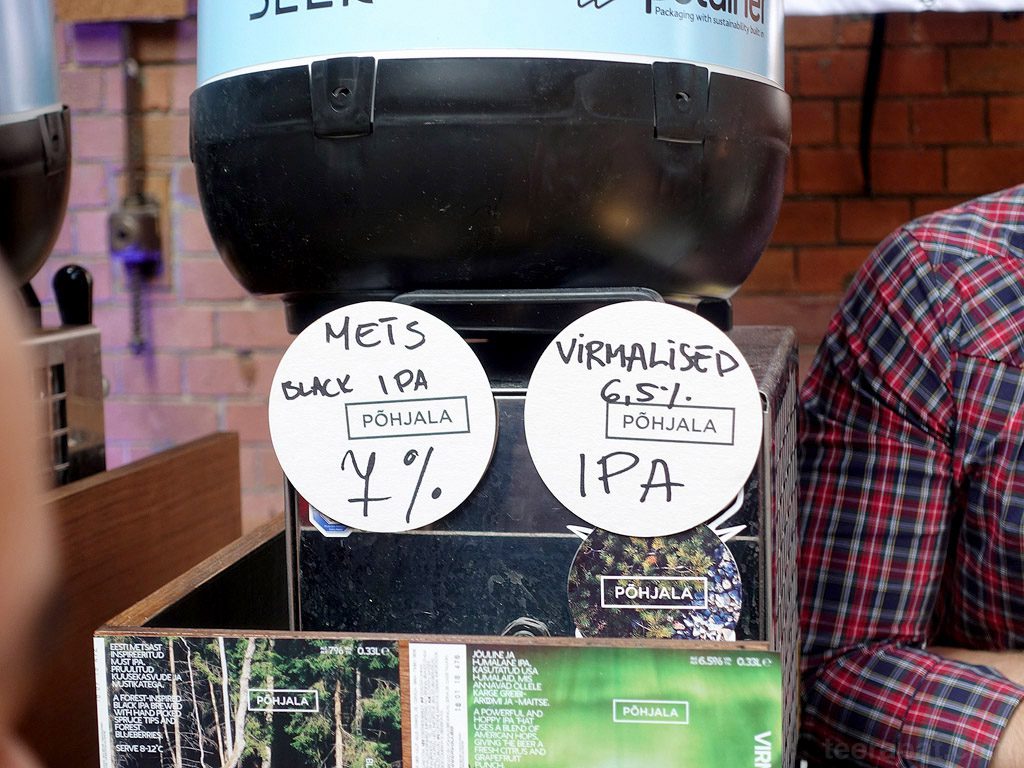 Packaging with sustainability built in
METS
BLACK IPA
PÕHJALA
7%
VIRMALISED
6,5%
PÕHJALA
IPA
PÕHJALA
EESTI METSAST
INSPIREERITUD
MUST IPA,
PRUULITUD
KUUSEKASVUDE JA
MUSTIKATEGA.
A FOREST-INSPIRED
BLACK IPA BREWED
WITH HAND PICKED
SPRUCE TIPS AND
FOREST
BLUEBERRIES.
SERVE 8-12°C
7% 0.33L e
PÕHJALA
JÕULINE JA
HUMALANE IPA.
KASUTATUD USA
HUMALAID, MIS
ANNAVAD ÕLLELE
KARGE GREIBI-
AROOMI JA -MAITSE.
A POWERFUL AND
HOPPY IPA THAT
USES A BLEND OF
AMERICAN HOPS,
GIVING THE BEER A
FRESH CITRUS AND
GRAPEFRUIT
PUNCH.
6.5% 0.33L e
PÕHJALA